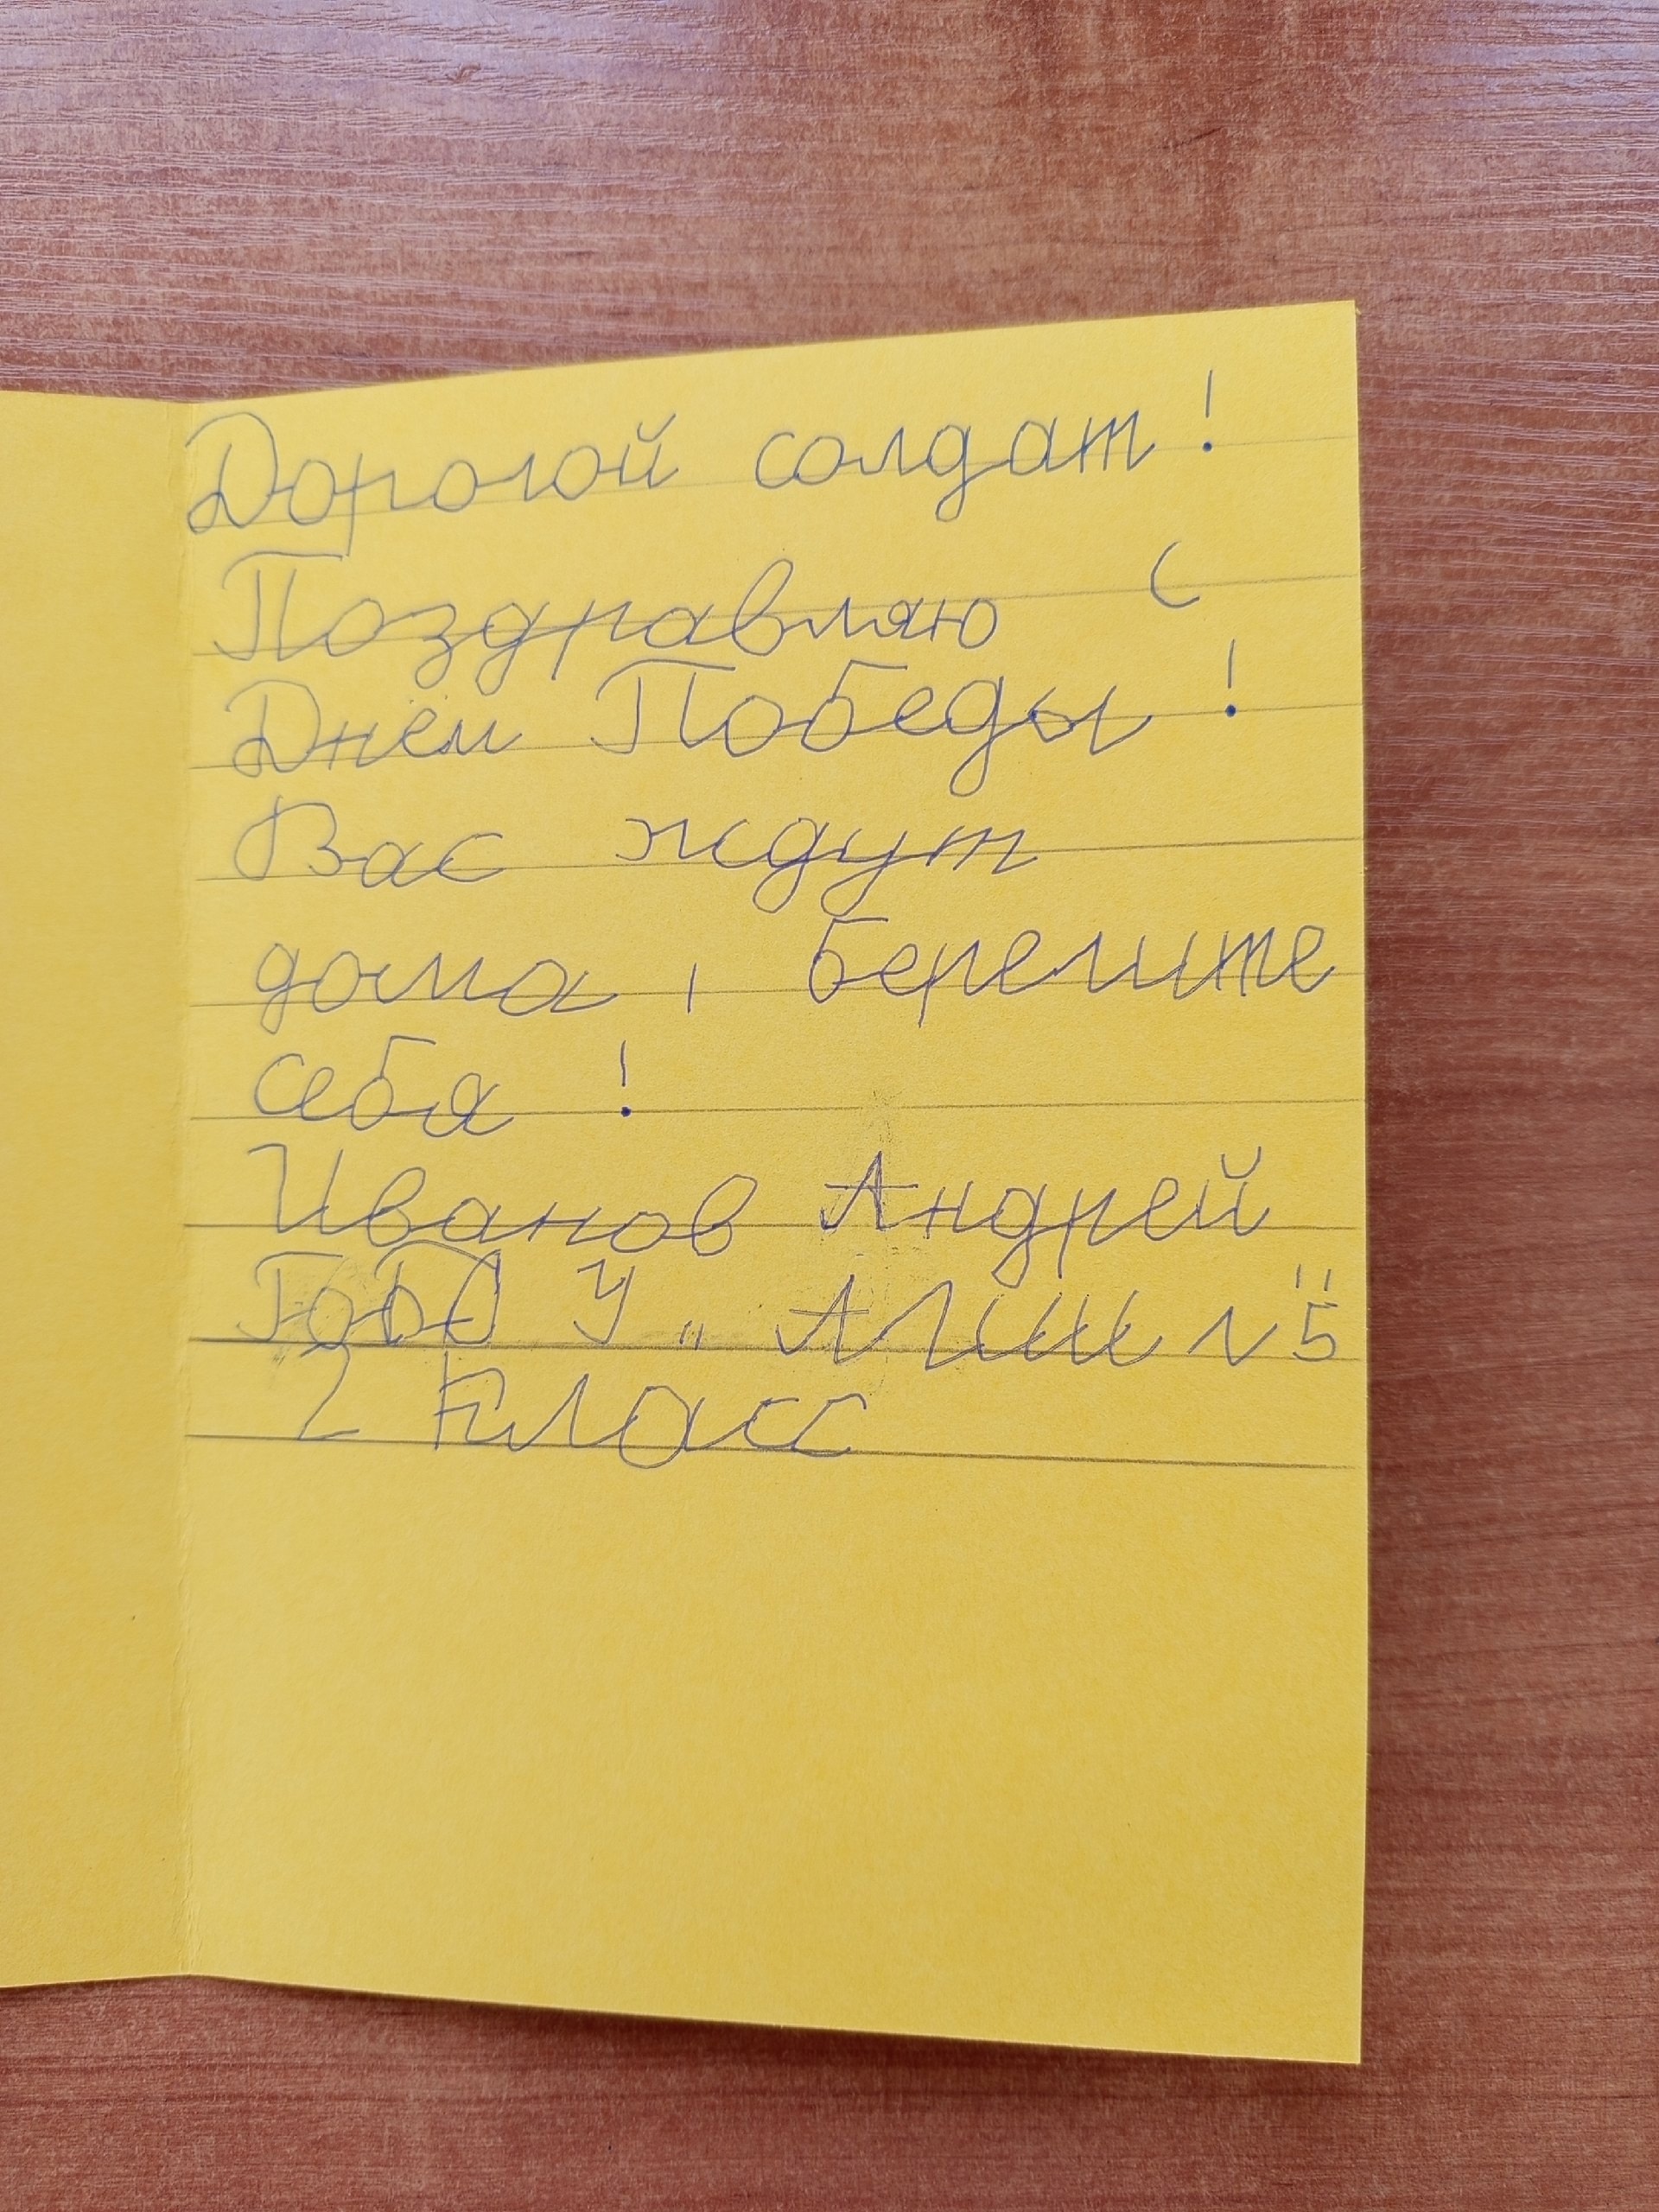 Дорогой солдат!
Поздравляю с
Днём Победы!
Вас ждут
дома, берегите
себя!
Иванов Андрей
ГОБОУ „АЛШИ №5"
2 Класс